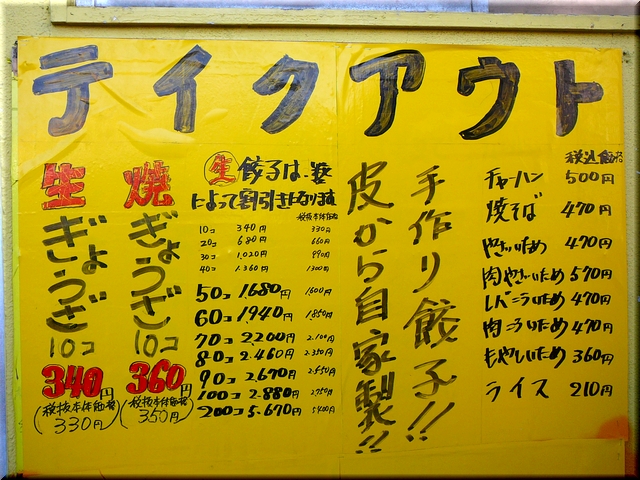 テイクアウト
生ぎょうざ
10コ
340円
(税抜本体価格
330円)
焼ぎょうざ
10コ
360円
(税抜本体価格
350円)
生 餃子は、数
によって割引きになります
税抜本体価格
10コ 340円 330円
20コ 680円 660円
30コ 1,020円 990円
40コ 1.360円 1300円
50コ 1.680円 1600円
60コ 1.940円 1.850円
70コ 2200円 2.100円
80コ 2.460円 2.350円
90コ 2,670円 2.550円
100コ 2.880円 2750円
200コ 5.670円 5400円
皮から自家製!!
手作り餃子!!
税込価格
チャーハン 500円
焼そば 470円
やさいいため 470円
肉やさいいため 570円
レバニラいため 470円
肉ニラいため 470円
もやしいため 360円
ライス 210円